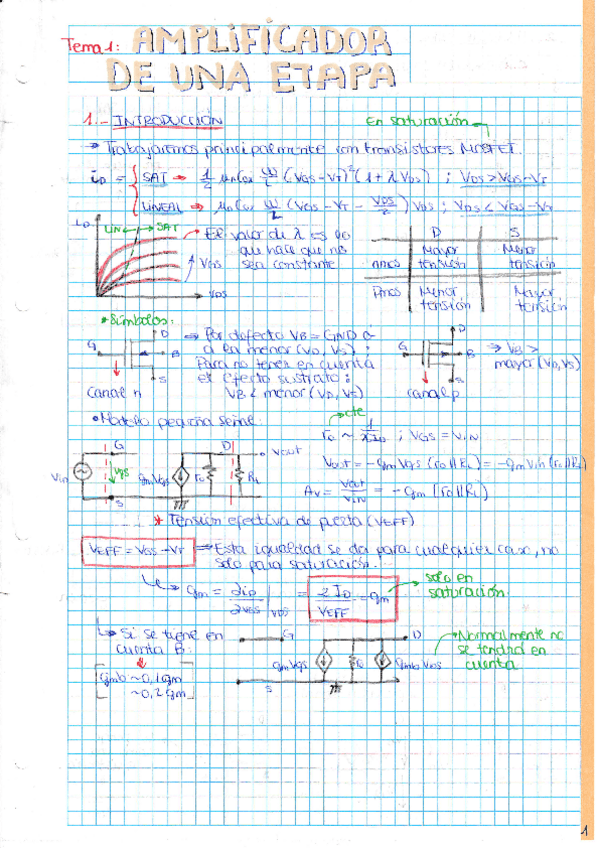 Tema 1: AMPLIFICADOR
DE UNA ETAPA
1.- INTRODUCCIÓN
En saturación
→ Trabajaremos principalmente con transistores MOSFET.
iD = { SAT → 1/2 μnCox W/L (VGS-VT)²(1+λVDS) ; VDS>VGS-VT
LINEAL → μnCox W/L (VGS-VT-VDS/2)VDS ; VDS<VGS-VT
iD LIN SAT → El valor de λ es lo
que hace que no
sea constante
VGS
VDS
D S
nmos Mayor tensión Menor tensión
Pmos Menor tensión Mayor tensión
* Símbolos:
G D B S
canal n
→ Por defecto VB = GND o
a la menor (VD, VS) ;
Para no tener en cuenta
el efecto sustrato:
VB < menor (VD, VS)
G D B S
canal p
→ VB >
mayor (VD, VS)
• Modelo pequeña señal:
cte
ro ~ 1/λID ; VGS = Vin
G D Vout
Vin Vgs gmVgs ro RL
S
Vout = -gmVgs (ro||RL) = -gmVin (ro||RL)
Av = Vout/Vin = -gm (ro||RL)
* Tensión efectiva de puerta (VEFF)
VEFF = VGS - VT ⇒ Esta igualdad se da para cualquier caso, no
solo para saturación.
gm = ∂iD/∂VGS |VDS = 2ID/VEFF = gm
solo en
saturación
Si se tiene en
cuenta B:
gmb ~ 0,1gm
~ 0,2gm
G D
gmVgs ro gmbVbs
S
* Normalmente no
se tendrá en
cuenta
1